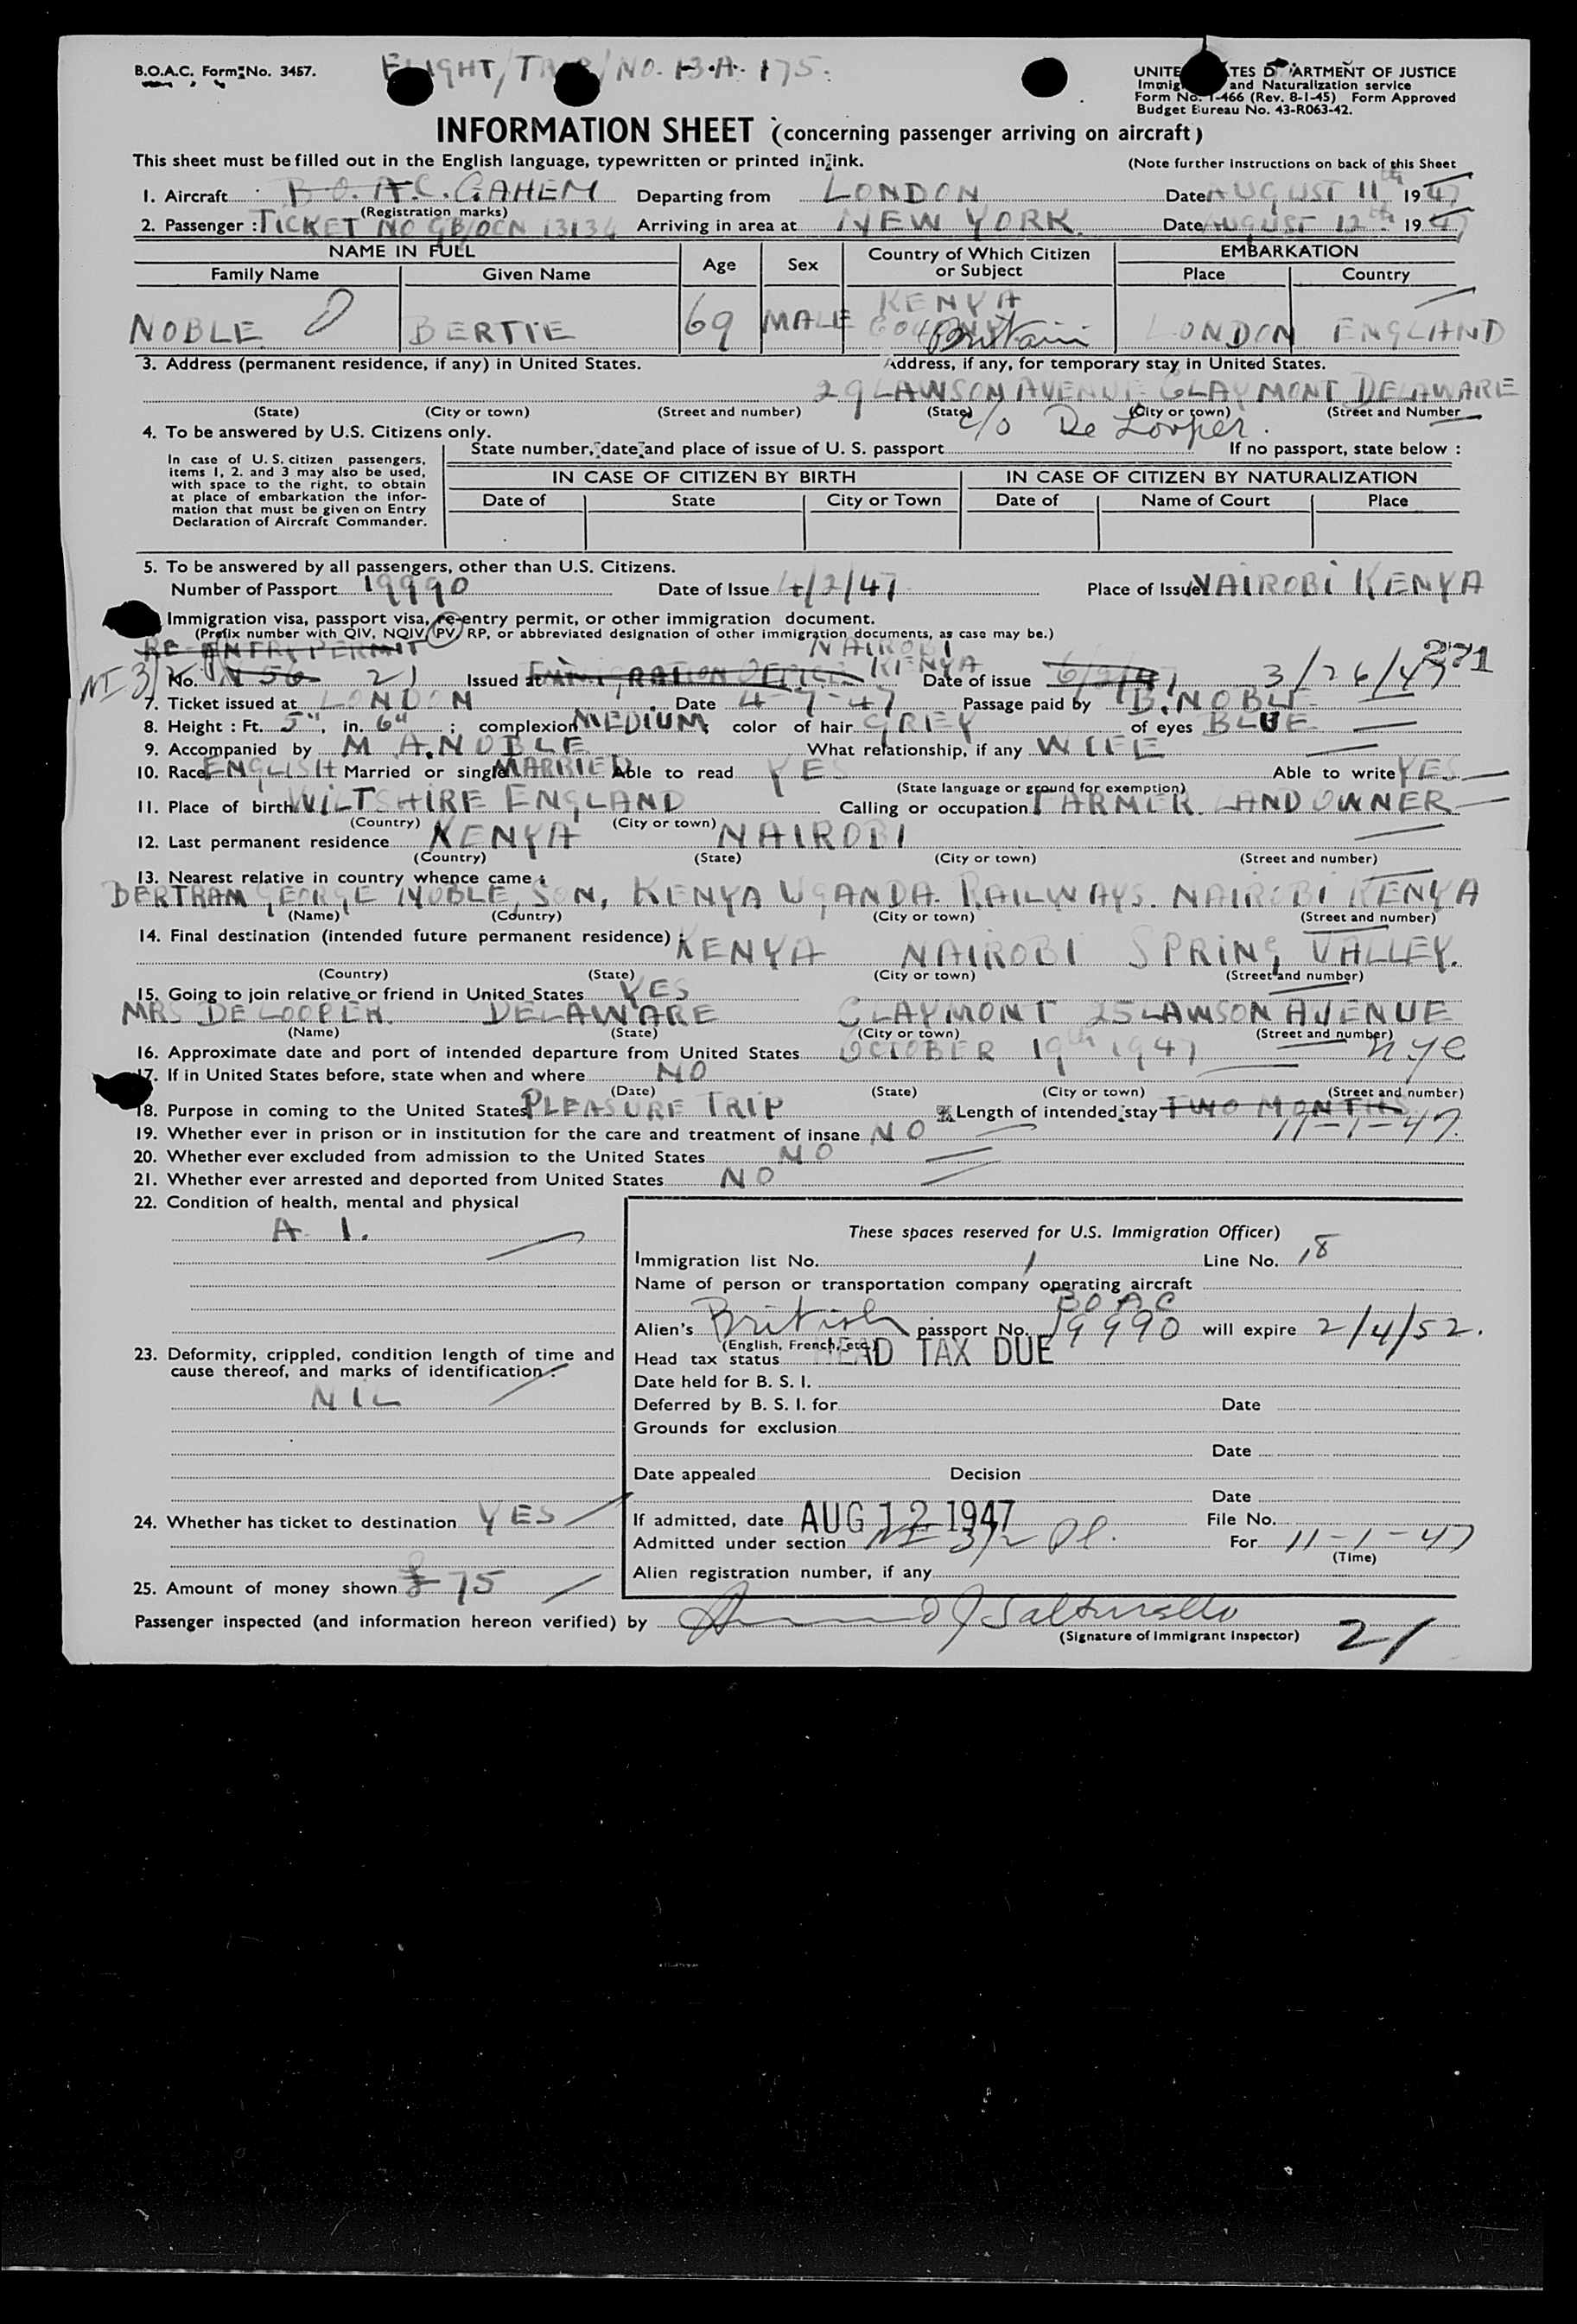 B.O.A.C. Form No. 3457.
FLIGHT/TRIP/NO. 13.A. 175.
UNITED STATES DEPARTMENT OF JUSTICE
Immigration and Naturalization service
Form No. I-466 (Rev. 8-1-45) Form Approved
Budget Bureau No. 43-R063-42.
INFORMATION SHEET (concerning passenger arriving on aircraft)
This sheet must be filled out in the English language, typewritten or printed in ink.
(Note further instructions on back of this Sheet
1. Aircraft B.O.A.C. GAHEM Departing from LONDON Date AUGUST 11th 1947
(Registration marks)
2. Passenger : TICKET NO GB/OCN 13134 Arriving in area at NEW YORK. Date AUGUST 12th 1947
NAME IN FULL Age Sex Country of Which Citizen or Subject EMBARKATION
Family Name Given Name Place Country
KENYA
NOBLE BERTIE 69 MALE COLONY Britain LONDON ENGLAND
3. Address (permanent residence, if any) in United States. Address, if any, for temporary stay in United States.
29 LAWSON AVENUE CLAYMONT DELAWARE
(State) (City or town) (Street and number) (State) (City or town) (Street and Number
c/o De Looper.
4. To be answered by U.S. Citizens only.
State number, date and place of issue of U. S. passport If no passport, state below :
In case of U. S. citizen passengers,
items 1, 2. and 3 may also be used,
with space to the right, to obtain
at place of embarkation the infor-
mation that must be given on Entry
Declaration of Aircraft Commander.
IN CASE OF CITIZEN BY BIRTH IN CASE OF CITIZEN BY NATURALIZATION
Date of State City or Town Date of Name of Court Place
5. To be answered by all passengers, other than U.S. Citizens.
Number of Passport 19990 Date of Issue 4/2/47 Place of Issue NAIROBI KENYA
Immigration visa, passport visa, re-entry permit, or other immigration document.
(Prefix number with QIV, NQIV, PV, RP, or abbreviated designation of other immigration documents, as case may be.)
RE-ENTRY PERMIT NAIROBI
271
NI 3/2 No. N 56 21 Issued at IMMIGRATION OFFICE KENYA Date of issue 6/2/47 3/26/47
7. Ticket issued at LONDON Date 4-7-47 Passage paid by B. NOBLE
8. Height : Ft. 5", in. 6" ; complexion MEDIUM color of hair GREY of eyes BLUE
9. Accompanied by M A. NOBLE What relationship, if any WIFE
10. Race ENGLISH Married or single MARRIED Able to read YES Able to write YES
(State language or ground for exemption)
11. Place of birth WILTSHIRE ENGLAND Calling or occupation FARMER LANDOWNER
(Country) (City or town)
12. Last permanent residence KENYA NAIROBI
(Country) (State) (City or town) (Street and number)
13. Nearest relative in country whence came :
BERTRAM GEORGE NOBLE, SON, KENYA UGANDA RAILWAYS. NAIROBI KENYA
(Name) (Country) (City or town) (Street and number)
14. Final destination (intended future permanent residence) :
KENYA NAIROBI SPRING VALLEY.
(Country) (State) (City or town) (Street and number)
15. Going to join relative or friend in United States YES
MRS DE LOOPER. DELAWARE CLAYMONT 25 LAWSON AVENUE
(Name) (State) (City or town) (Street and number)
16. Approximate date and port of intended departure from United States OCTOBER 19th 1947 nyc
17. If in United States before, state when and where NO
(Date) (State) (City or town) (Street and number)
18. Purpose in coming to the United States PLEASURE TRIP Length of intended stay TWO MONTHS
11-1-47.
19. Whether ever in prison or in institution for the care and treatment of insane NO
20. Whether ever excluded from admission to the United States NO
21. Whether ever arrested and deported from United States NO
22. Condition of health, mental and physical
A 1.
23. Deformity, crippled, condition length of time and
cause thereof, and marks of identification :
NIL
24. Whether has ticket to destination YES
25. Amount of money shown £ 75
These spaces reserved for U.S. Immigration Officer)
Immigration list No. 1 Line No. 18
Name of person or transportation company operating aircraft
BOAC
Alien's British passport No. 19990 will expire 2/4/52.
(English, French, etc.)
Head tax status HEAD TAX DUE
Date held for B. S. I.
Deferred by B. S. I. for Date
Grounds for exclusion
Date
Date appealed Decision
Date
If admitted, date AUG 12 1947 File No.
Admitted under section NI 3/2 Pl. For 11-1-47
(Time)
Alien registration number, if any
Passenger inspected (and information hereon verified) by
(Signature of Immigrant Inspector)
21